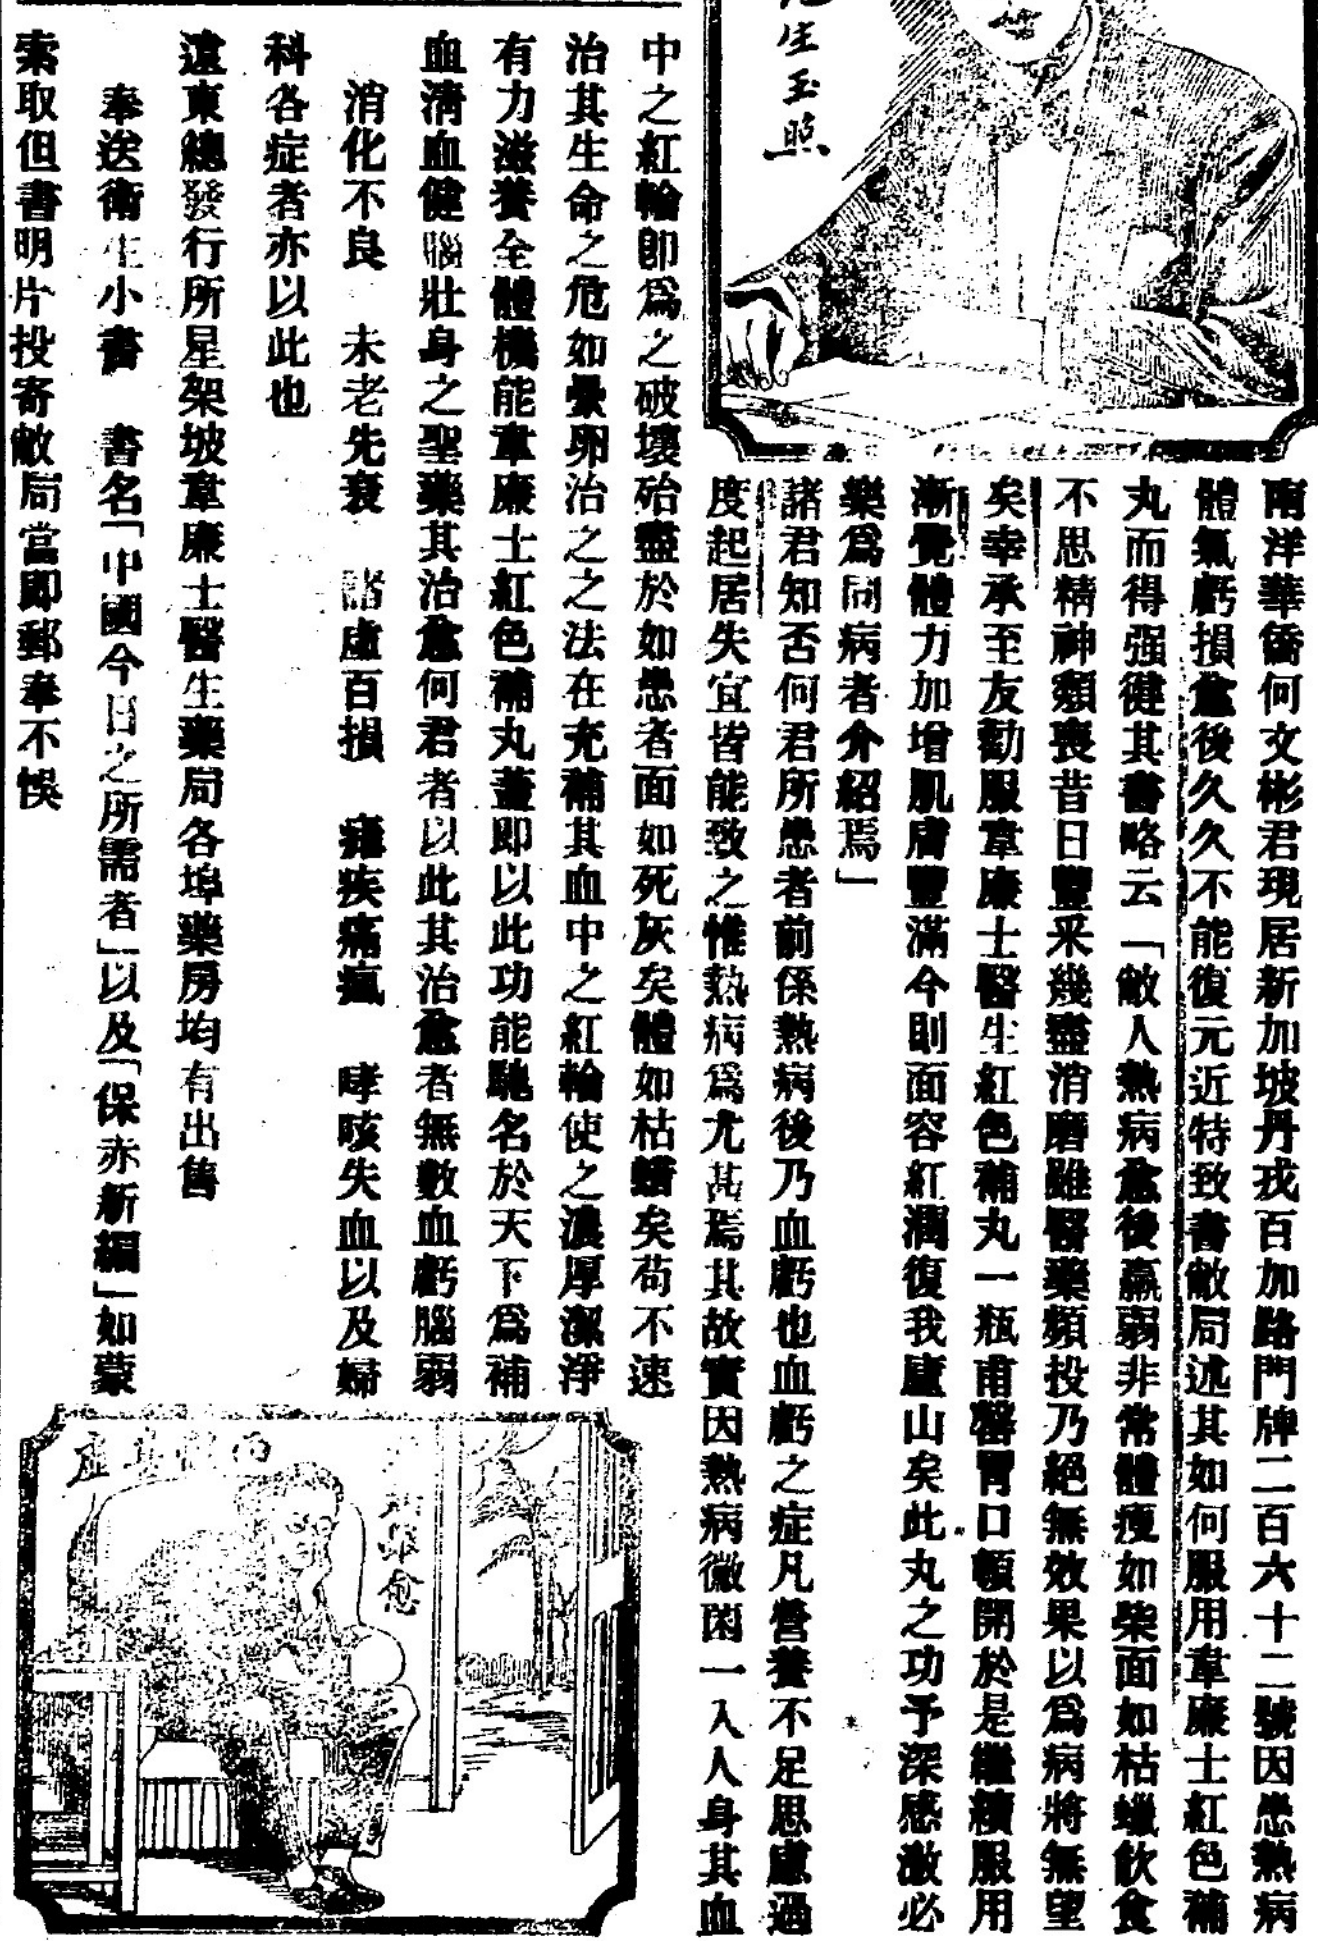 生玉照
南洋華僑何文彬君現居新加坡丹戎百加路門牌二百六十二號因患熱病
體氣虧損愈後久久不能復元近特致書敝局述其如何服用韋廉士紅色補
丸而得强健其書略云「敝人熱病愈後羸弱非常體瘦如柴面如枯蠟飲食
不思精神頹喪昔日豐采幾盡消磨雖醫藥頻投乃絕無效果以爲病將無望
矣幸承至友勸服韋廉士醫生紅色補丸一瓶甫罄胃口頓開於是繼續服用
漸覺體力加增肌膚豐滿今則面容紅潤復我廬山矣此丸之功予深感激必
樂爲同病者介紹焉」
諸君知否何君所患者前係熱病後乃血虧也血虧之症凡營養不足思慮過
度起居失宜皆能致之惟熱病爲尤甚焉其故實因熱病微菌一入人身其血
中之紅輪卽爲之破壞殆盡於如患者面如死灰矣體如枯蠟矣苟不速
治其生命之危如纍卵治之之法在充補其血中之紅輪使之濃厚潔淨
有力滋養全體機能韋廉士紅色補丸蓋即以此功能馳名於天下爲補
血淸血健腦壯身之聖藥其治愈何君者以此其治愈者無數血虧腦弱
消化不良 未老先衰 諸虛百損 瘧疾痛瘋 哮咳失血以及婦
科各症者亦以此也
遠東總發行所星架坡韋廉士醫生藥局各埠藥房均有出售
奉送衛生小書 書名「中國今日之所需者」以及「保赤新編」如蒙
索取但書明片投寄敝局當即郵奉不悞
卽愈